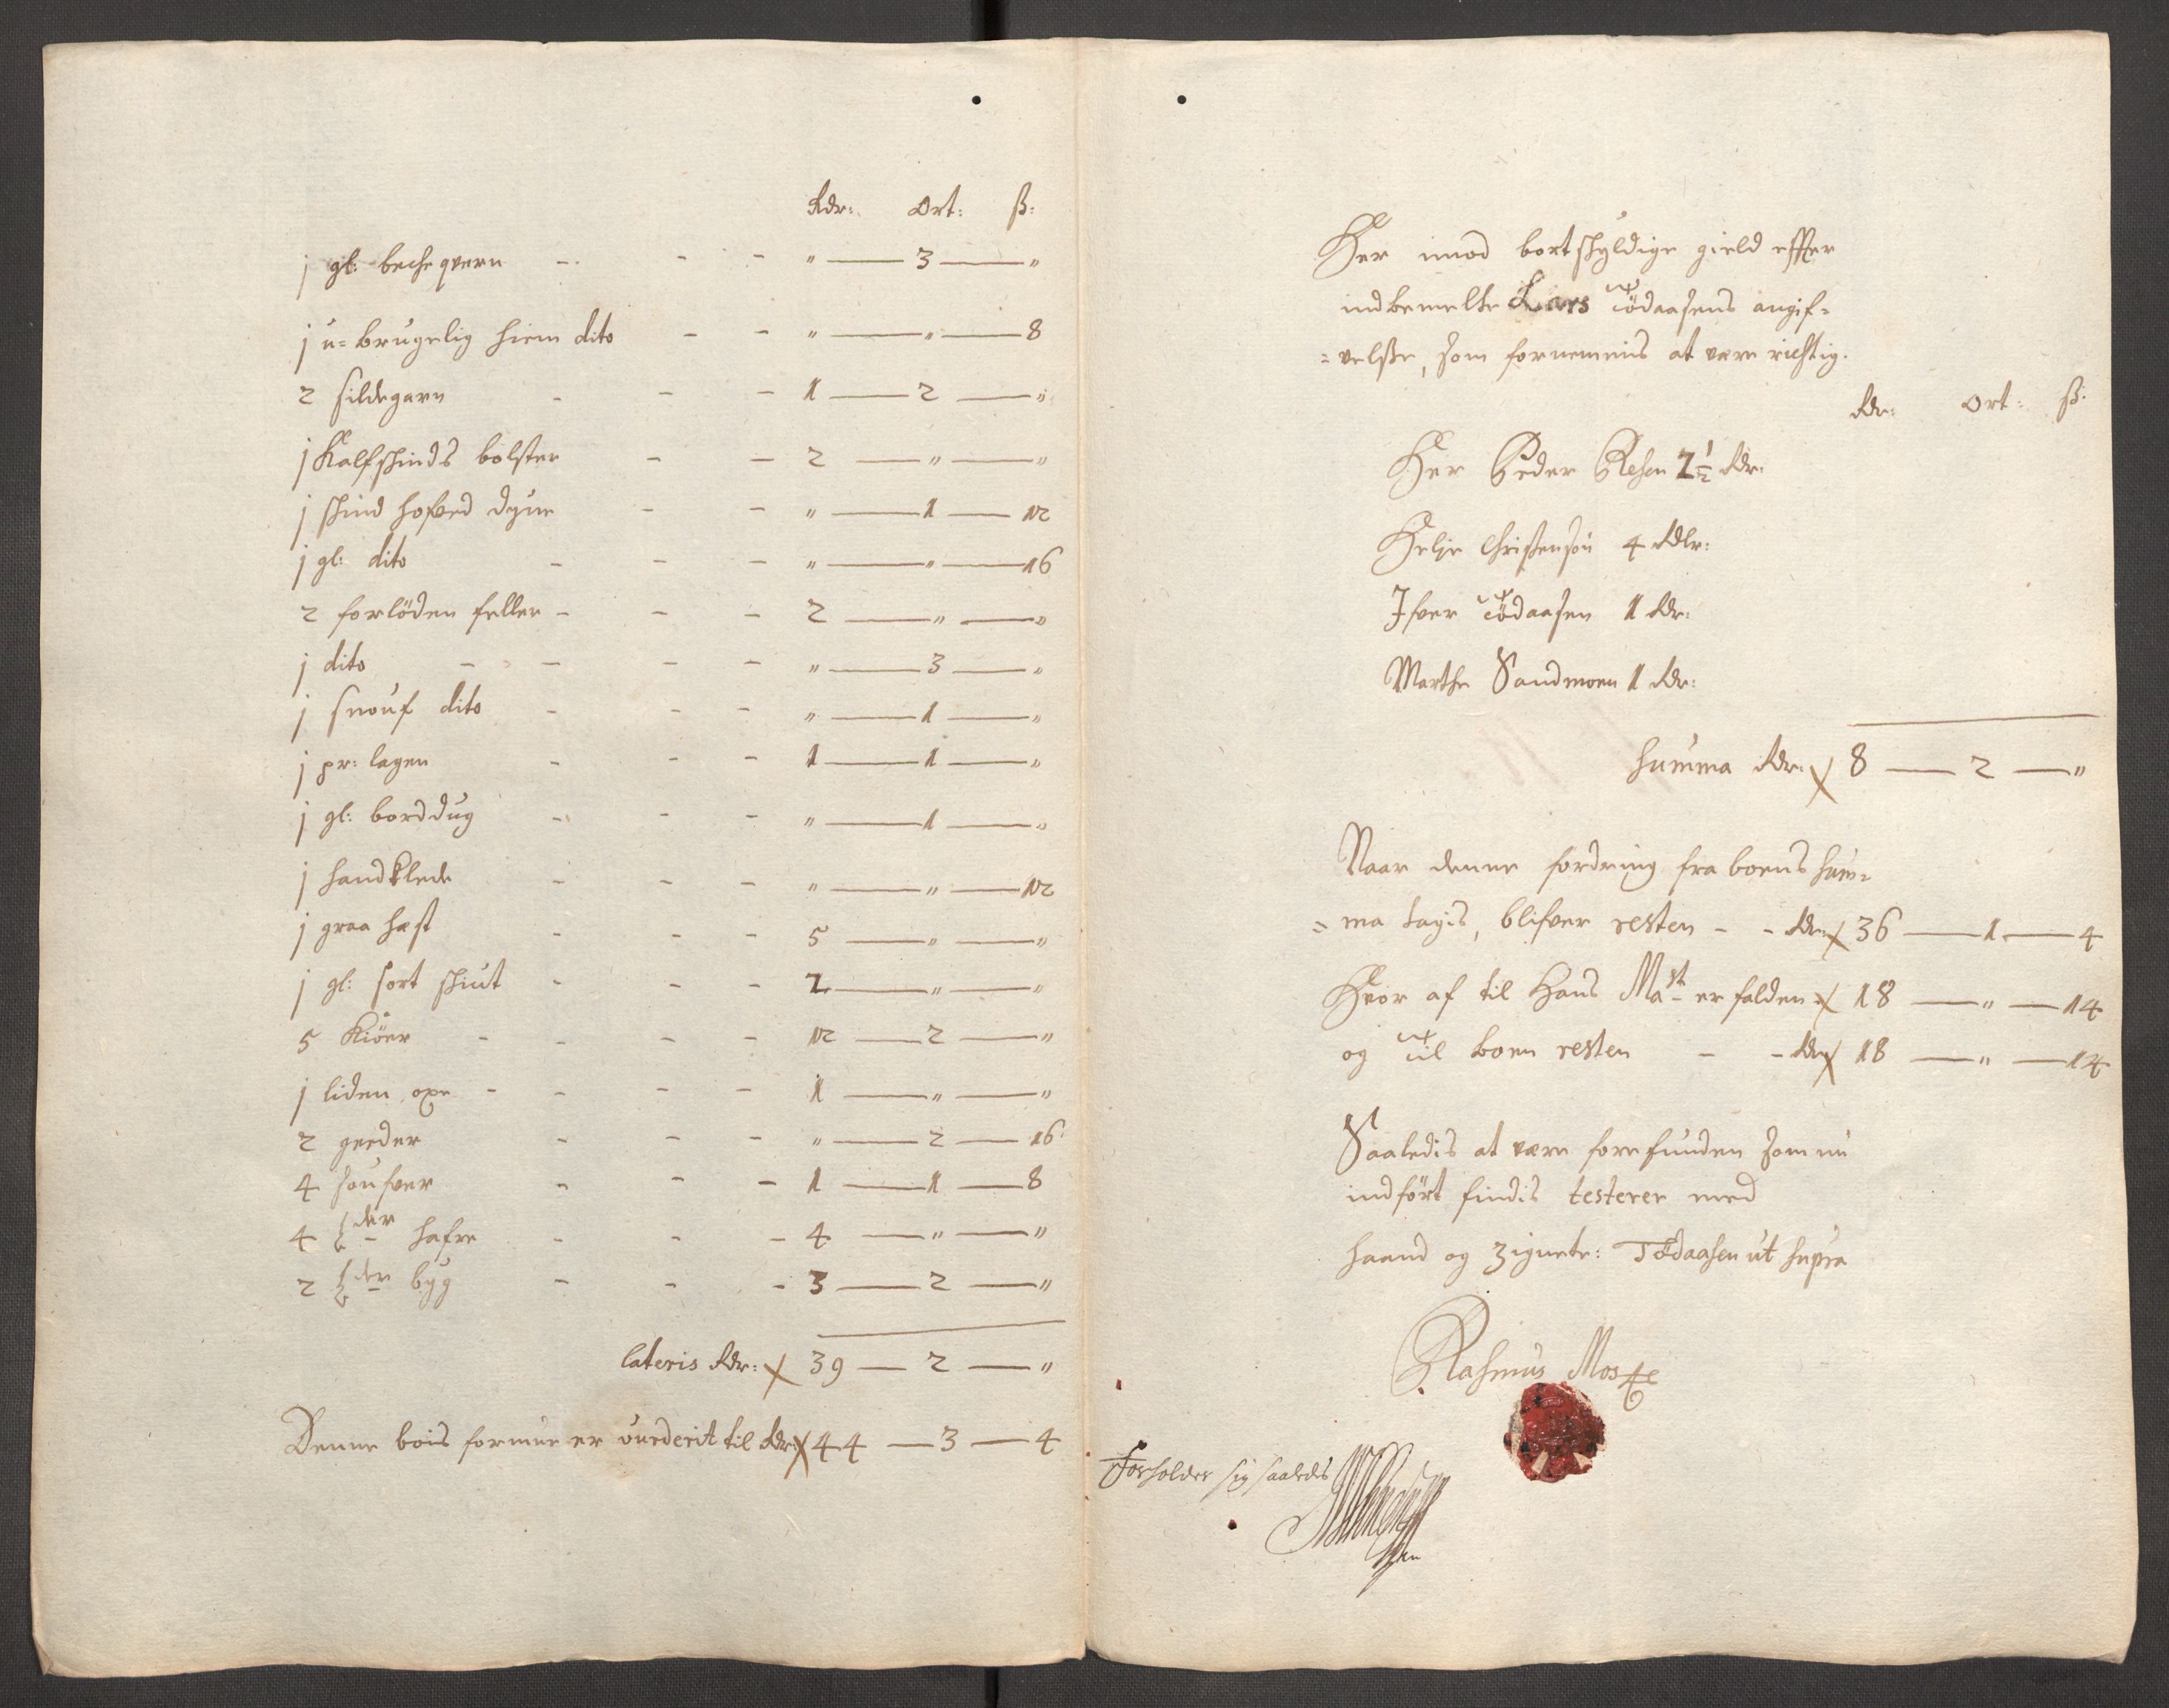 Rdr: Ort: ß:
j gl: bechqvern - - - " — 3 — "
j u-brugelig hiem dito - - " — " — 8
2 sildegarn - - - 1 — 2 — "
j Kalfskinds bolster - - 2 — " — "
j skind hofved dyne - - " — 1 — 12
j gl: dito - - - " — " — 16
2 forlöden feller - - - 2 — " — "
j dito - - - - " — 3 — "
j snouf dito - - - " — 1 — "
j pr: lagen - - - 1 — 1 — "
j gl: borddug - - - " — 1 — "
j handklede - - - " — " — 12
j graa hest - - - 5 — " — "
j gl: sort skiut - - - 2 — " — "
5 Kiöer - - - - 12 — 2 — "
j liden oxe - - - - 1 — " — "
2 geeder - - - " — 2 — 16
4 soufver - - - 1 — 1 — 8
4 tder hafre - - - 4 — " — "
2 tder byg - - - 3 — 2 — "
lateris Rdr: 39 — 2 — "
Denne bois formue er vurderit til Rdr: 44 — 3 — 4
Her imod bortskyldige gield effter
indbemelte Lars Tödaasens angif=
=velsse, som fornemmis at vere richtig.
Rdr: Ort: ß:
Her Peder Resen 2½ Rdr:
Helje Christensön 4 Rdlr:
Ifver Tödaasen 1 Rdr:
Marthe Sandmoen 1 Rdr:
Summa Rdr: 8 — 2 — "
Naar denne fordring fra boens sum=
=ma tagis, blifver resten - - Rdr: 36 — 1 — 4
Hvor af til Hans Mast er falden 18 — " — 14
og til boen resten - - Rdr 18 — " — 14
Saaledis at vere forefunden som nu
indfört findis testerer med
haand og Zignete: Tödaasen ut supra
Rasmus Moste
Forholder sig saaledis